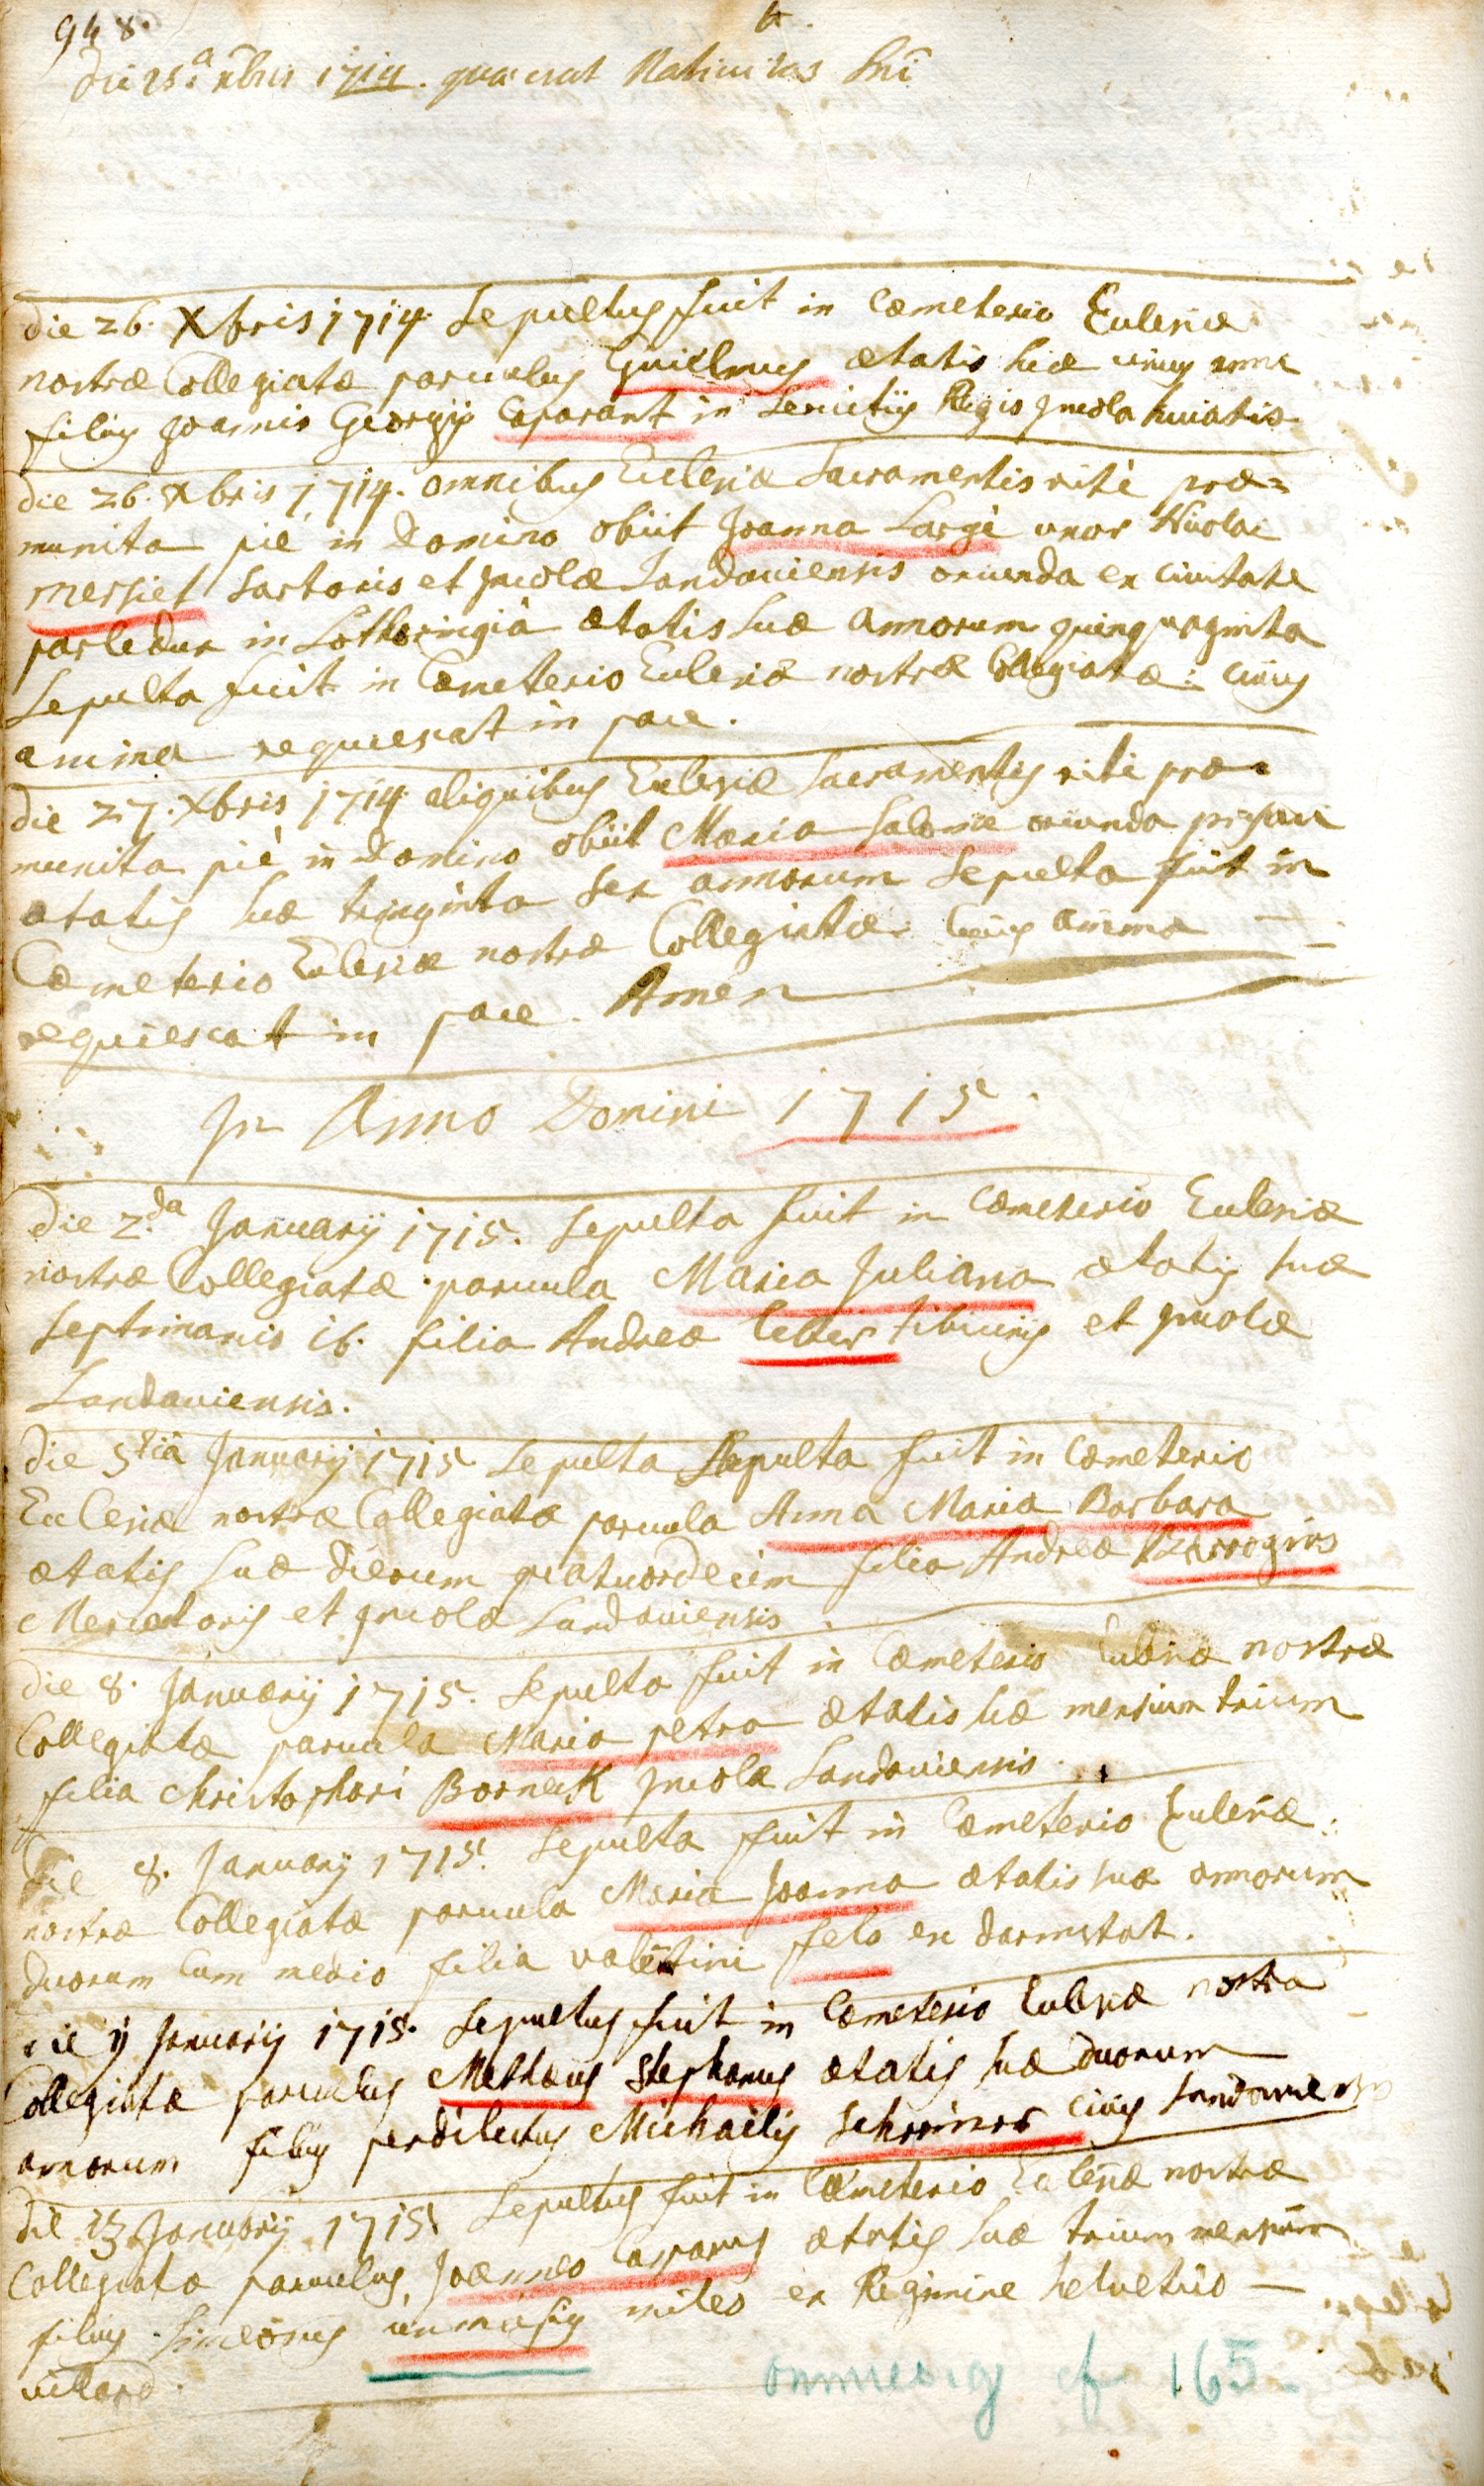 948.
die 25.a xbris 1714. quae erat Nativitas Dni
die 26. Xbris 1714. Sepultus fuit in Cœmeterio Eulesiæ
nostræ Collegiatæ parvulus Guielmus ætatis suæ unius anni
filius Joannis Georgij Caparant in servitijs Regis Jncola huiatis
die 26. Xbris 1714. omnibus Eulesiæ Sacramentis ritè præ=
munita piè in Domino obiit Joanna Largè uxor Nicolai
Messiet Sartoris et Jncolæ Landaviensis oriunda ex civitate
parledun in Lotharingiâ ætatis suæ annorum quinquaginta
Sepulta fuit in Cæmeterio Eulesiæ nostræ Collegiatæ: cuius
anima requiescat in pace.
die 27. Xbris 1714 aliquibus Eulesiæ Sacramentis ritè præ=
munita piè in Domino obiit Maria Salome oriunda
ætatis suæ triginta sex annorum Sepulta fuit in
Cœmeterio Eulesiæ nostræ Collegiatæ. Cuius anima
requiescat in pace. Amen
Jn Anno Domini 1715.
Die 2.da Januarij 1715. Sepulta fuit in Cœmeterio Eulesiæ
nostræ Collegiatæ parvula Maria Juliana ætatis suæ
septimanis 16. filia Andreæ leber tibicinis et Jncolæ
Landaviensis.
die 5tiâ Januarij 1715 Sepulta Sepulta fuit in Cœmeterio
Eulesiæ nostræ Collegiatæ parvula Anna Maria Barbara
ætatis suæ dierum quatuordecim filia Andreæ
Mercatoris et Jncolæ Landaviensis
die 8. Januarij 1715. Sepulta fuit in Cœmeterio Eulesiæ nostræ
Collegiatæ parvula Maria petra ætatis suæ mensium trium
filia Christophori Borneck Jncolæ Landaviensis.
die 8. Januarij 1715. Sepulta fuit in Cœmeterio Eulesiæ
nostræ Collegiatæ parvula Maria Joanna ætatis suæ annorum
duorum cum medio filia valentini fels ex darmstat.
die 11 Januarij 1715. Sepultus fuit in Cœmeterio Eulesiæ nostra
Collegiatæ parvulus Mathæus Stephanus ætatis suæ duorum
annorum filius perdilectus Michaëlis Schreiner civis Landaviensis
die 13 Januarij 1715 Sepultus fuit in Cæmeterio Eulesiæ nostræ
Collegiata parvulus Joannes Casparus ætatis suæ trium mensium
filius Simeonis miles ex Regimine helvetico
villard.
ommesig cf 165